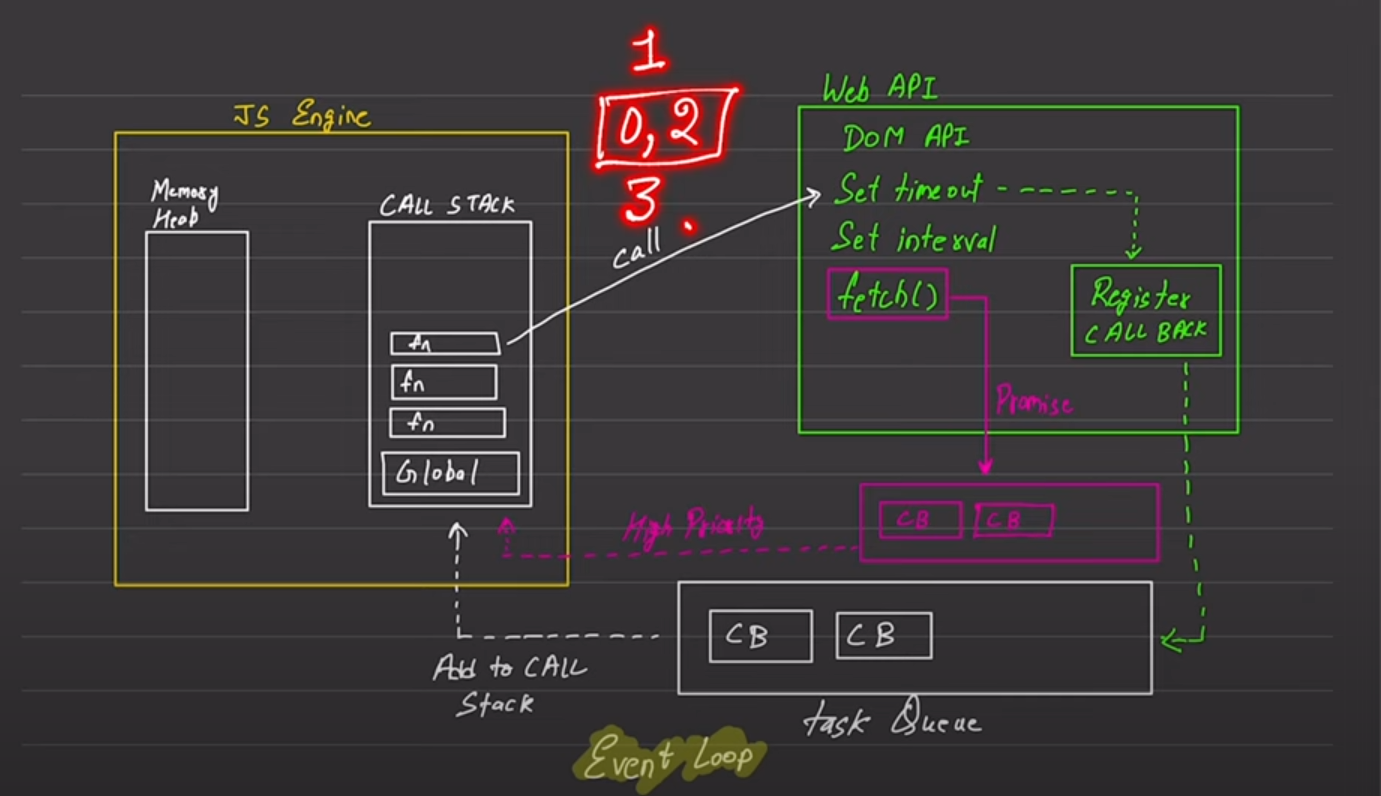 1
0, 2
3.
JS Engine
Memory
Heap
CALL STACK
fn
fn
fn
Global
call
Web API
DOM API
Set timeout
Set interval
fetch()
Register
CALL BACK
Promise
CB
CB
High Priority
CB
CB
Add to CALL
Stack
task Queue
Event Loop